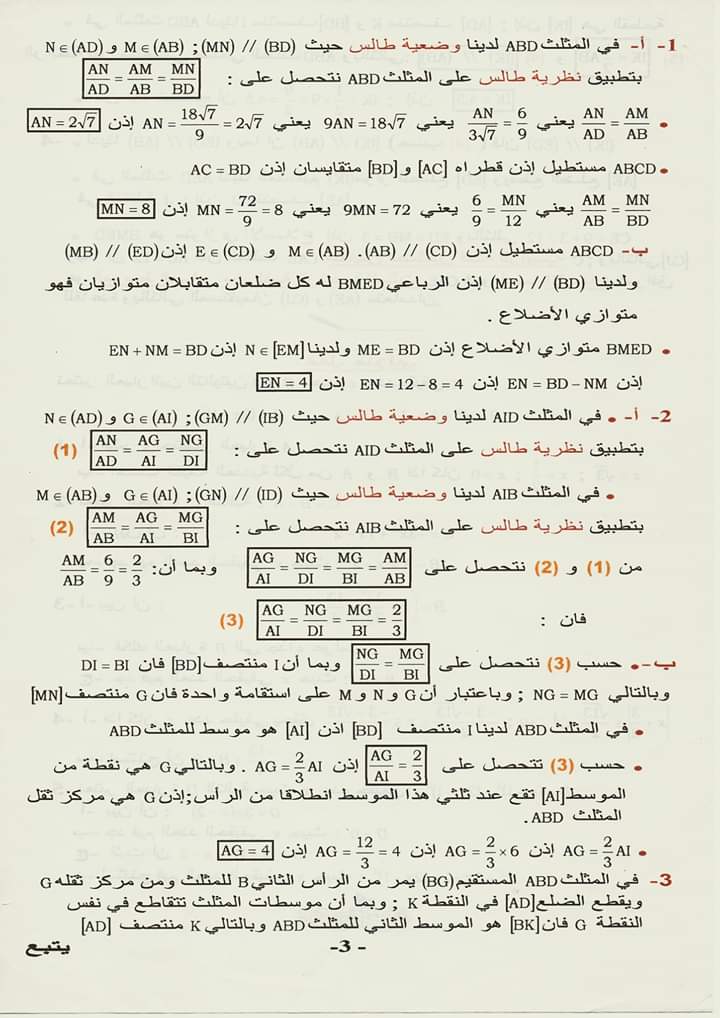 1- أ- في المثلث ABD لدينا وضعية طالس حيث (BD) // (MN) ; M∈(AB) و N∈(AD)
بتطبيق نظرية طالس على المثلث ABD نتحصل على : AN/AD = AM/AB = MN/BD
• AN/AD = AM/AB يعني AN/3√7 = 6/9 يعني 9AN = 18√7 يعني AN = 18√7/9 = 2√7 إذن AN = 2√7
• ABCD مستطيل إذن قطراه [AC] و [BD] متقايسان إذن AC = BD
AM/AB = MN/BD يعني 6/9 = MN/12 يعني 9MN = 72 يعني MN = 72/9 = 8 إذن MN = 8
ب- ABCD مستطيل إذن (CD) // (AB). M∈(AB) و E∈(CD) إذن (ED) // (MB)
ولدينا (BD) // (ME) إذن الرباعي BMED له كل ضلعان متقابلان متوازيان فهو
متوازي الأضلاع .
• BMED متوازي الأضلاع إذن ME = BD ولدينا N∈[EM] إذن EN + NM = BD
إذن EN = BD – NM إذن EN = 12 – 8 = 4 إذن EN = 4
2- أ- • في المثلث AID لدينا وضعية طالس حيث (IB) // (GM) ; G∈(AI) و N∈(AD)
بتطبيق نظرية طالس على المثلث AID نتحصل على : AN/AD = AG/AI = NG/DI (1)
• في المثلث AIB لدينا وضعية طالس حيث (ID) // (GN) ; G∈(AI) و M∈(AB)
بتطبيق نظرية طالس على المثلث AIB نتحصل على : AM/AB = AG/AI = MG/BI (2)
من (1) و (2) نتحصل على AG/AI = NG/DI = MG/BI = AM/AB وبما أن: AM/AB = 6/9 = 2/3
فان : AG/AI = NG/DI = MG/BI = 2/3 (3)
ب-• حسب (3) نتحصل على NG/DI = MG/BI وبما أن I منتصف [BD] فان DI = BI
وبالتالي NG = MG ; وباعتبار أن G و N و M على استقامة واحدة فان G منتصف [MN]
• في المثلث ABD لدينا I منتصف [BD] اذن [AI] هو موسط للمثلث ABD
• حسب (3) نتحصل على AG/AI = 2/3 إذن AG = 2/3 AI . وبالتالي G هي نقطة من
الموسط [AI] تقع عند ثلثي هذا الموسط انطلاقا من الرأس ; إذن G هي مركز ثقل
المثلث ABD.
• AG = 2/3 AI إذن AG = 2/3 ×6 إذن AG = 12/3 = 4 إذن AG = 4
3- في المثلث ABD المستقيم (BG) يمر من الرأس الثاني B للمثلث ومن مركز ثقله G
ويقطع الضلع [AD] في النقطة K ; وبما أن موسطات المثلث تتقاطع في نفس
النقطة G فان [BK] هو الموسط الثاني للمثلث ABD وبالتالي K منتصف [AD]
-3-
يتبع